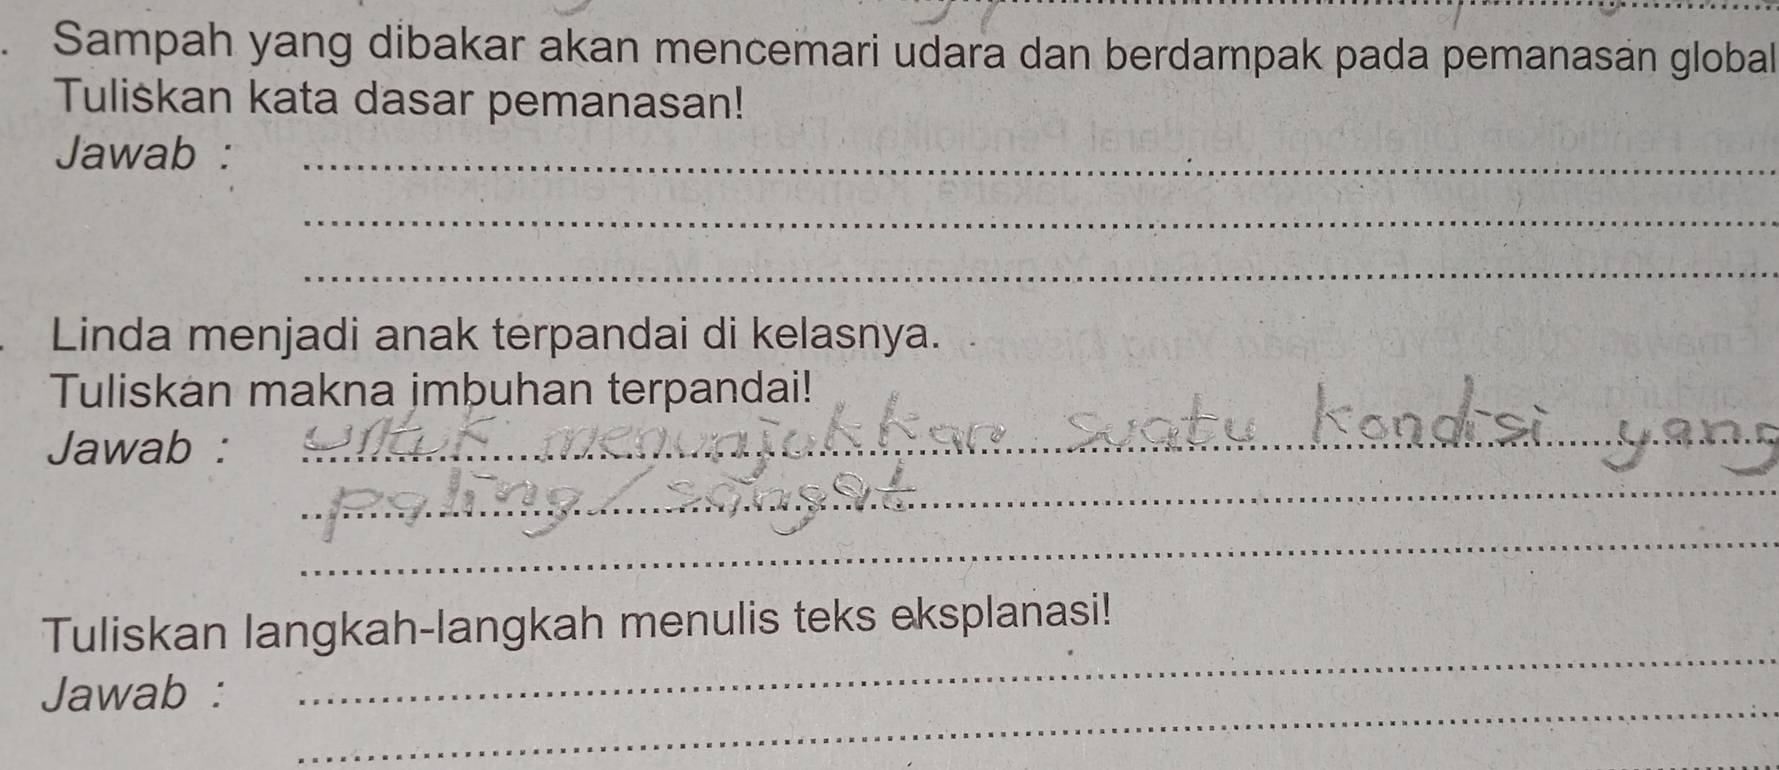 . Sampah yang dibakar akan mencemari udara dan berdampak pada pemanasan global
Tuliskan kata dasar pemanasan!
Jawab :
. Linda menjadi anak terpandai di kelasnya.
Tuliskan makna imbuhan terpandai!
Jawab : untuk menunjukkan suatu kondisi yang
paling/sangat
Tuliskan langkah-langkah menulis teks eksplanasi!
Jawab :